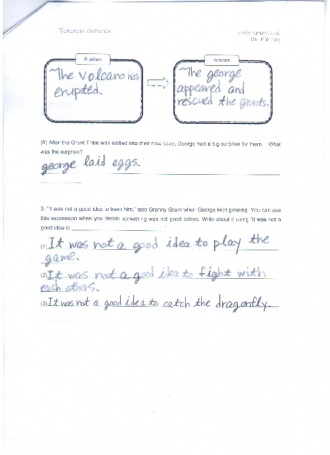 Problem
Solution
~The volcano has
erupted.
~The george
appeared and
rescued the grunts.
(8) After the Grunt Tribe was settled into their new cave, George had a big surprise for them. What
was the surprise?
george laid eggs.
3. "It was not a good idea to keep him," said Granny Grunt when George kept growing. You can use
this expression when you decide something was not good before. Write about it using "It was not a
good idea to
(1) It was not a good idea to play the
game.
(2) It was not a good idea to fight with
each others.
(3) It was not a good idea to catch the dragonfly